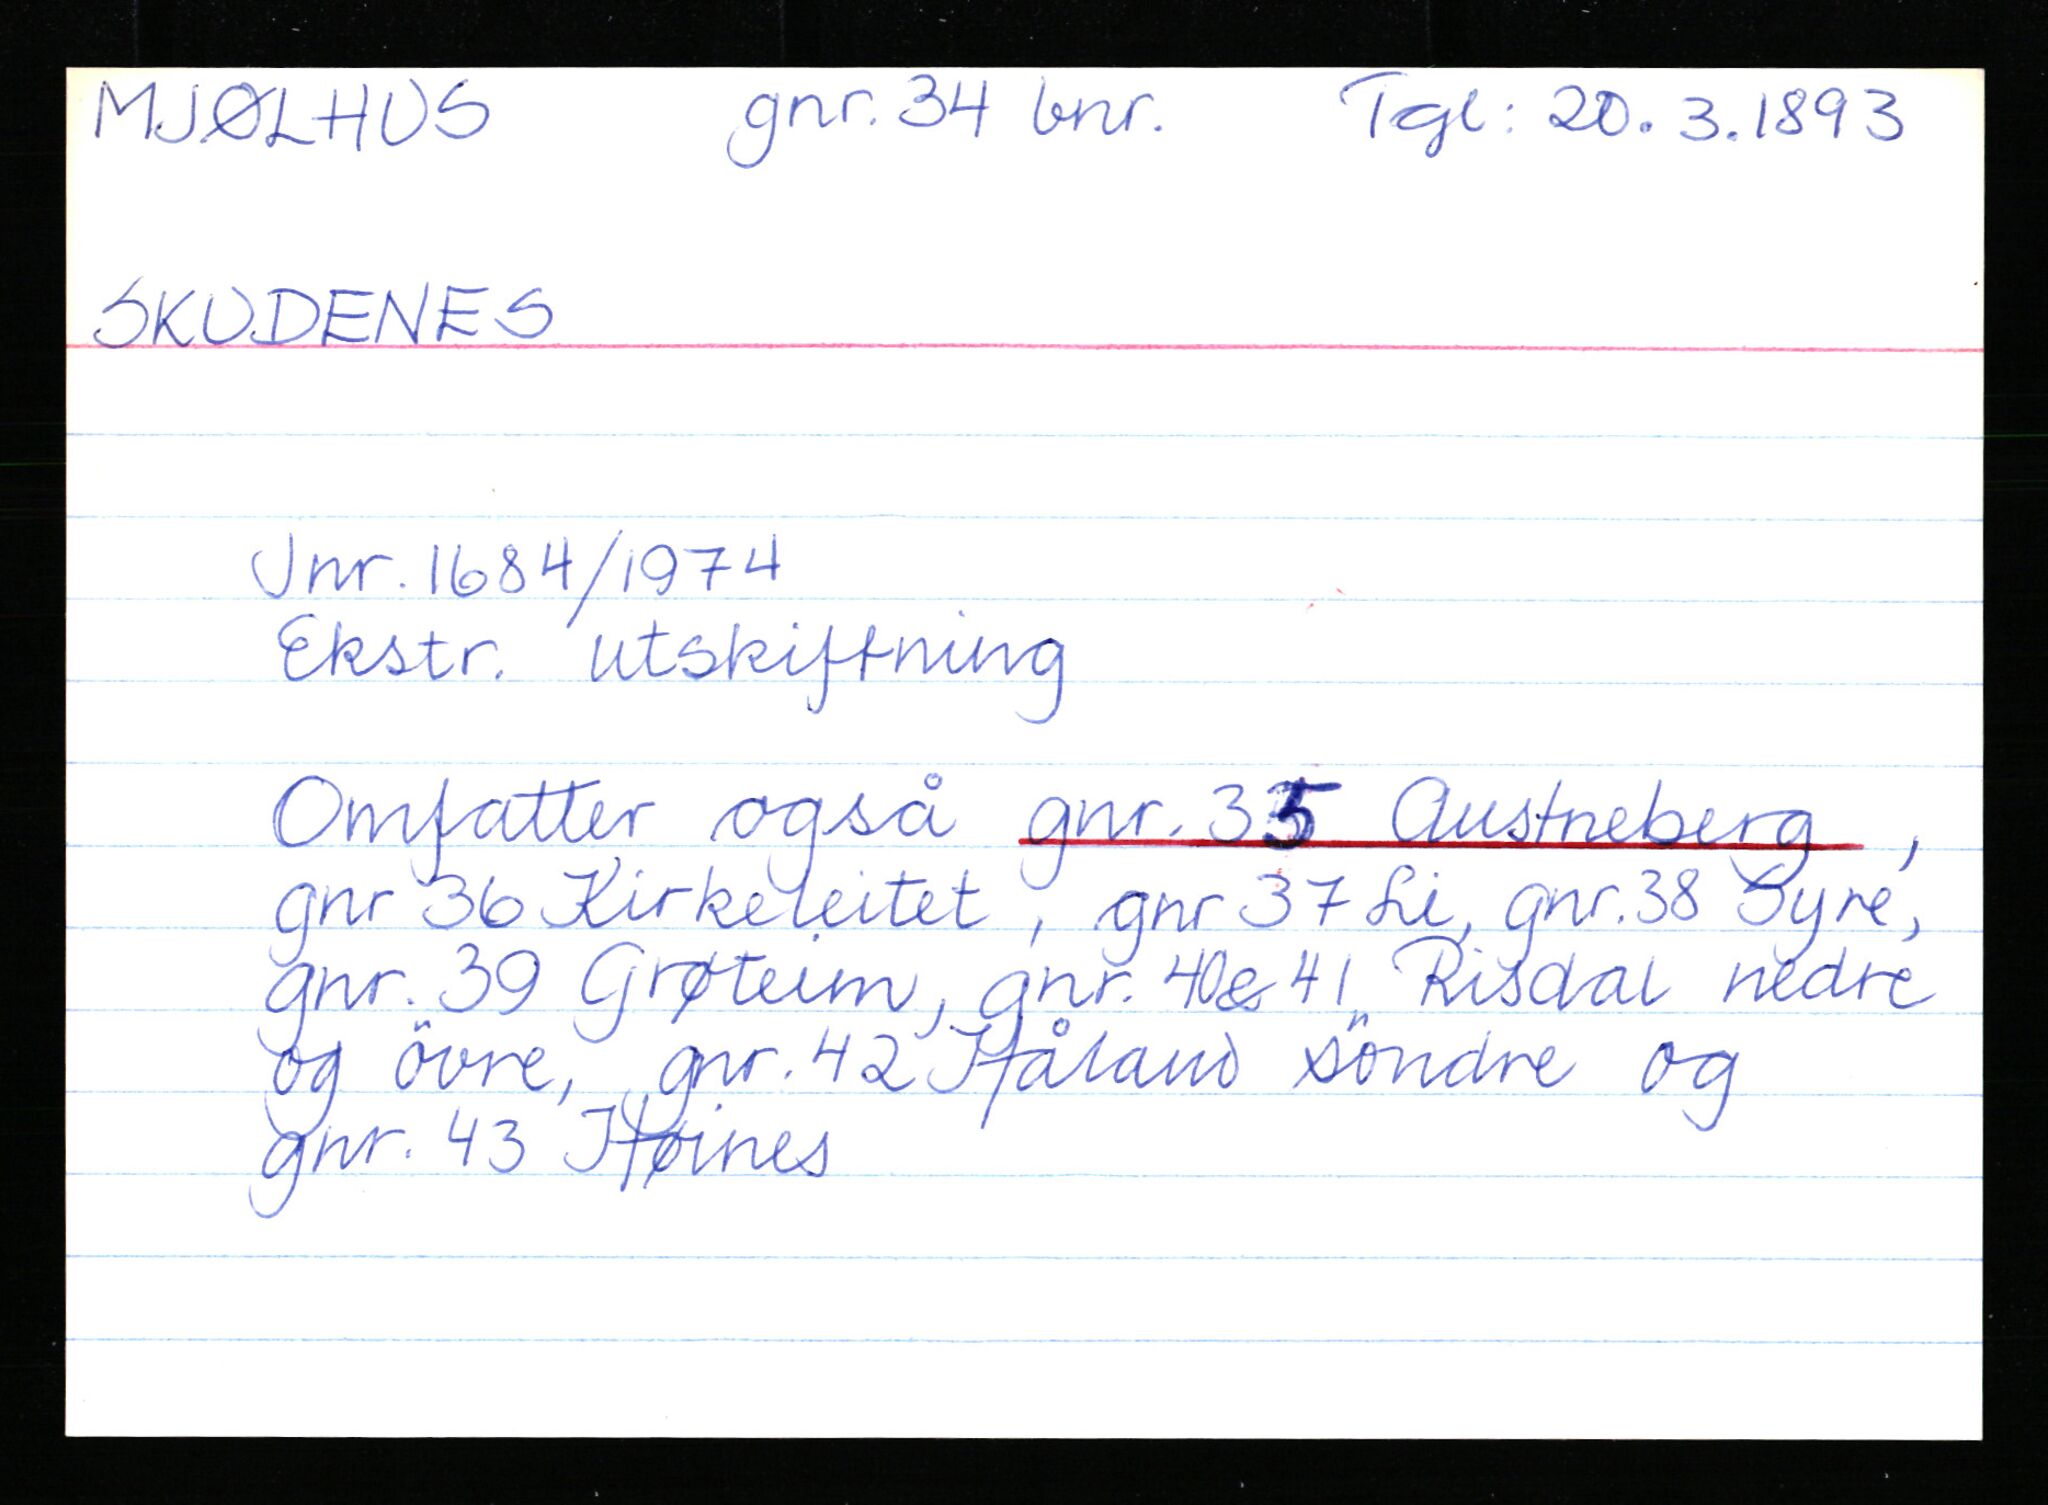 MJØLHUS gnr. 34 bnr. Tgl: 20.3.1893
SKUDENES
Jnr. 1684/1974
Ekstr. utskiftning
Omfatter også gnr. 35 Austneberg,
gnr 36 Kirkeleitet, gnr 37 Li, gnr. 38 Syre,
gnr. 39 Grøteim, gnr. 40 & 41 Risdal nedre
og övre, gnr. 42 Håland söndre og
gnr. 43 Høines